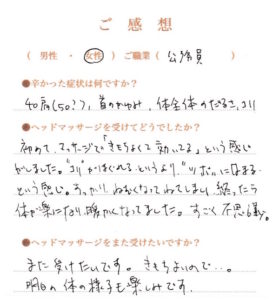 ご感想
( 男性 ・ 女性 ) ご職業 ( 公務員 )
●辛かった症状は何ですか？
40肩(50?)、首のかゆみ、体全体のだるさ、コリ
●ヘッドマッサージを受けてどうでしたか？
初めて、マッサージで「きもちよくて効いてる」という感じ
がしました。"コリ"がほぐれるというより、"ツボ"にはまる
という感じ。すっかりねむくなってねてしまい、終ったら
体が楽になり、暖かくなってました。すごく不思議。
●ヘッドマッサージをまた受けたいですか？
また受けたいです。きもちよいので・・。
明日の体の様子も楽しみです。